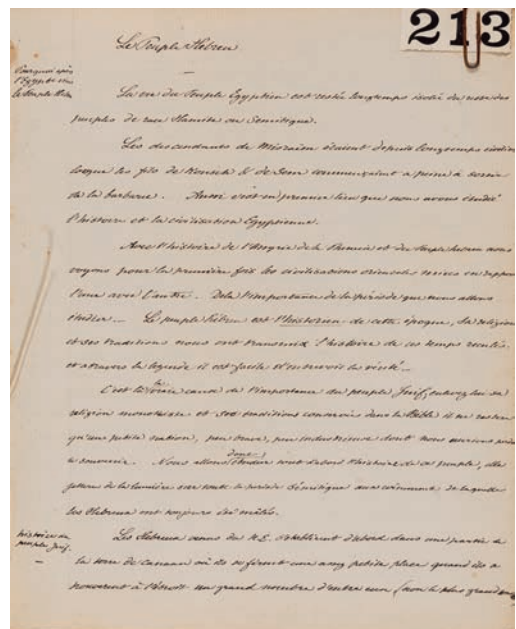 213
Le Peuple Hébreu
Pourquoi après
l'Egypte vient
le Peuple Héb.
La vie du Peuple Egyptien est restée longtemps isolée du reste des
peuples de race Hamite ou Sémitique.
Les descendants de Misraïm étaient depuis longtemps civilisés
lorsque les fils de Kousch & de Sem commençaient à peine à sortir
de la barbarie. Aussi c'est en premier lieu que nous avons étudié
l'histoire et la civilisation Egyptienne.
Avec l'histoire de l'Assyrie de la Phénicie et du Peuple hébreu nous
voyons pour la première fois les civilisations orientales mises en rapport
l'une avec l'autre. De là l'importance de la période que nous allons
étudier — Le peuple hébreu est l'historien de cette époque, sa religion
et ses traditions nous ont transmis l'histoire de ces temps reculés,
et à travers la légende il est facile d'entrevoir la vérité —
C'est là la vraie cause de l'importance du peuple Juif, enlevez lui sa
religion monothéiste et ses traditions conservées dans la Bible il ne restera
qu'une petite nation, peu brave, peu industrieuse dont nous aurions perdu
le souvenir. Nous allons donc étudier tout d'abord l'histoire de ce peuple, elle
jettera de la lumière sur toute la période Sémitique aux événements de laquelle
les Hébreux ont toujours été mêlés.
histoire du
peuple Juif.
Les Hébreux venus du N.E. s'établirent d'abord dans une partie de
la terre de Canaan où ils se firent une assez petite place quand ils
trouvèrent à l'étroit un grand nombre d'entre eux (non le plus grand